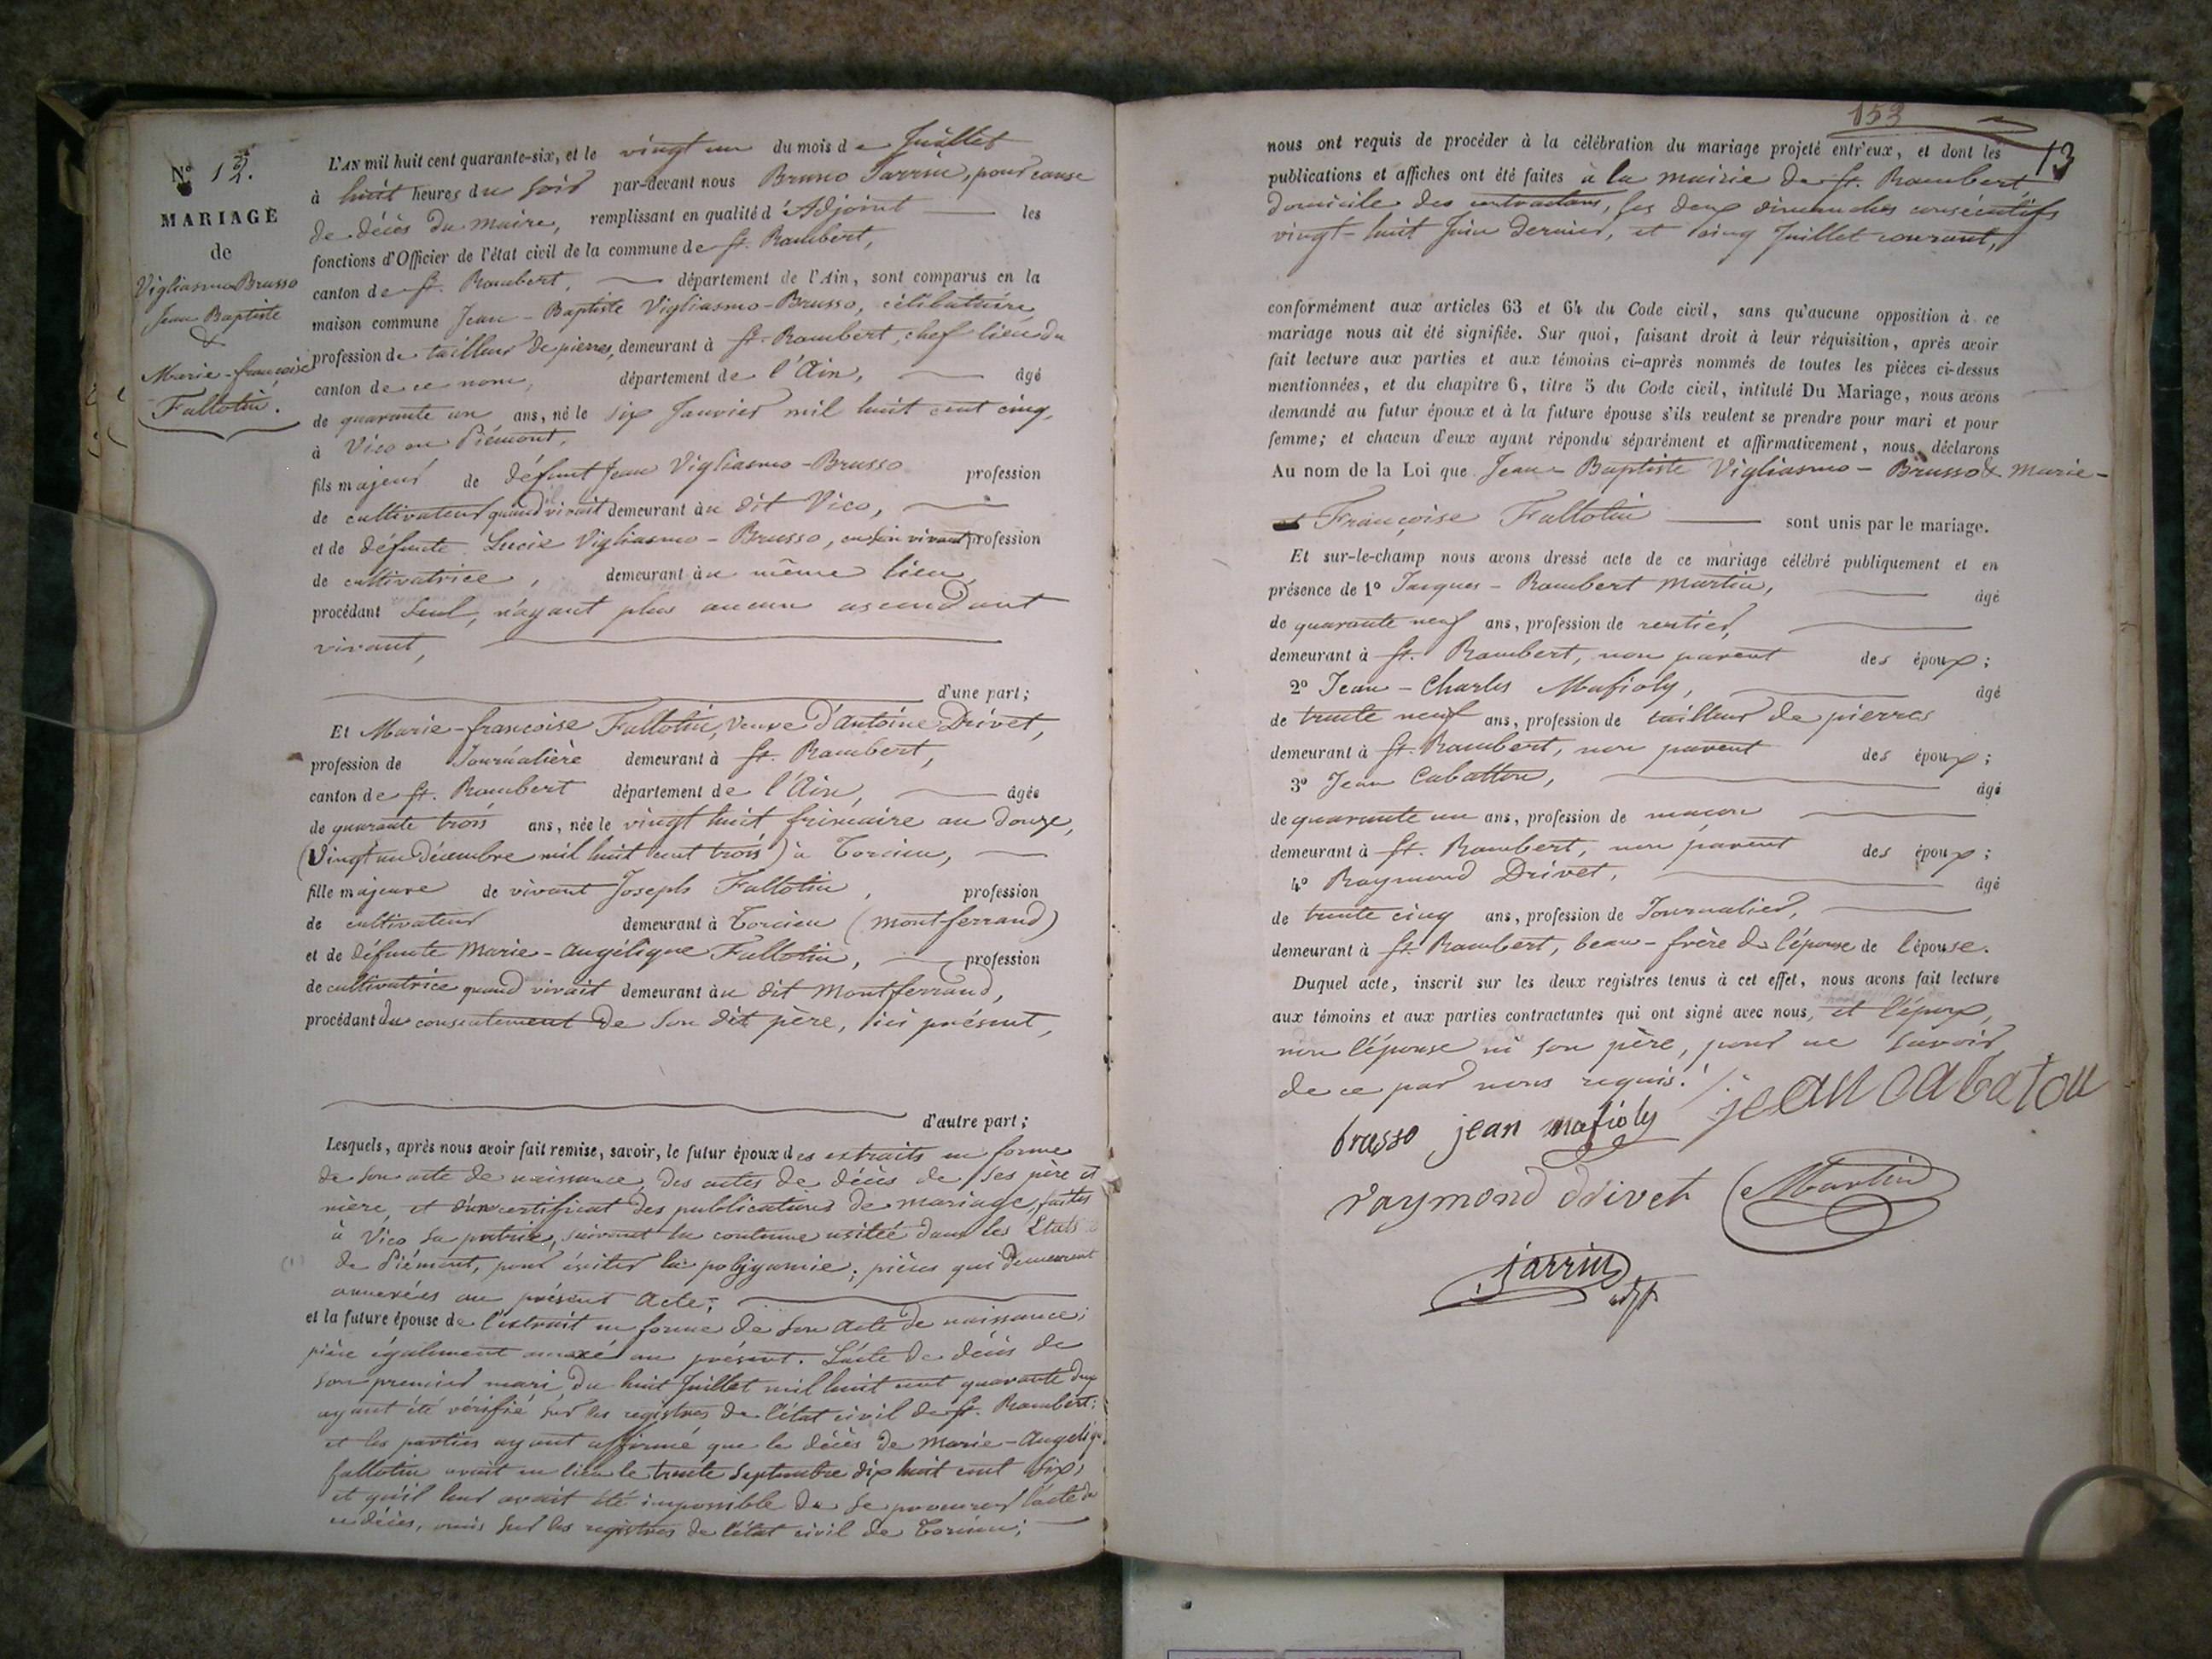 Nº 12.
MARIAGE
de
Vigliasmo-Brusso
Jean Baptiste
&
Marie-françoise
Fallotin.
L'AN mil huit cent quarante-six, et le vingt un du mois de Juillet
à huit heures du soir par-devant nous Bruno Jarrin, pour cause
de décès du maire, remplissant en qualité d'Adjoint les
fonctions d'Officier de l'état civil de la commune de St. Rambert,
canton de St. Rambert, département de l'Ain, sont comparus en la
maison commune Jean-Baptiste Vigliasmo-Brusso, célibataire,
profession de tailleur de pierres, demeurant à St. Rambert, chef lieu du
canton de ce nom, département de l'Ain, âgé
de quarante un ans, né le six Janvier mil huit cent cinq,
à Vico en Piémont,
fils majeur de défunt Jean Vigliasmo-Brusso profession
de cultivateur quand vivait demeurant au dit Vico,
et de défunte Lucie Vigliasmo-Brusso, en son vivant profession
de cultivatrice, demeurant au même lieu,
procédant seul, n'ayant plus aucun ascendant
vivant,
d'une part;
Et Marie-françoise Fallotin, veuve d'Antoine Drivet,
profession de Journalière demeurant à St. Rambert,
canton de St. Rambert département de l'Ain, âgée
de quarante trois ans, née le vingt huit frimaire an douze,
(Vingt un décembre mil huit cent trois) à Torcieu,
fille majeure de vivant Joseph Fallotin, profession
de cultivateur demeurant à Torcieu (montferrand)
et de défunte Marie-Angélique Fallotin, profession
de cultivatrice quand vivait demeurant au dit Montferrand,
procédant du consentement de son dit père, ici présent,
d'autre part;
Lesquels, après nous avoir fait remise, savoir, le futur époux des extraits en forme
de son acte de naissance, des actes de décès de ses père et
mère, et d'un certificat des publications de mariage, faites
à Vico sa patrie, suivant la coutume usitée dans les Etats
de Piémont, pour éviter la polygamie; pièces qui demeurent
annexées au présent acte;
et la future épouse de l'extrait en forme de son acte de naissance;
pièce également annexé au présent. L'acte de décès de
son premier mari, du huit Juillet mil huit cent quarante deux
ayant été vérifié sur les registres de l'état civil de St. Rambert;
et les parties ayant affirmé que le décès de Marie-Angéliqe
fallotin avait eu lieu le trente septembre dix huit cent six,
et qu'il leur avait été impossible de se procurer l'acte de
ce décès, omis sur les registres de l'état civil de Torcieu;
153
13
nous ont requis de procéder à la célébration du mariage projeté entr'eux, et dont les
publications et affiches ont été faites à la mairie de St. Rambert
domicile des contractans, les deux dimanches consécutifs
vingt-huit Juin dernier, et cinq Juillet courant,
conformément aux articles 63 et 64 du Code civil, sans qu'aucune opposition à ce
mariage nous ait été signifiée. Sur quoi, faisant droit à leur réquisition, après avoir
fait lecture aux parties et aux témoins ci-après nommés de toutes les pièces ci-dessus
mentionnées, et du chapitre 6, titre 5 du Code civil, intitulé Du Mariage, nous avons
demandé au futur époux et à la future épouse s'ils veulent se prendre pour mari et pour
femme; et chacun d'eux ayant répondu séparément et affirmativement, nous déclarons
Au nom de la Loi que Jean-Baptiste Vigliasmo-Brusso & Marie-
Françoise Fallotin sont unis par le mariage.
Et sur-le-champ nous avons dressé acte de ce mariage célébré publiquement et en
présence de 1º Jacques-Rambert Martin, âgé
de quarante neuf ans, profession de rentier,
demeurant à St. Rambert, non parent des époux;
2º Jean-Charles Mafioly, âgé
de trente neuf ans, profession de tailleur de pierres
demeurant à St. Rambert, non parent des époux;
3º Jean Cabatton, âgé
de quarante un ans, profession de maçon
demeurant à St. Rambert, non parent des époux;
4º Raymond Drivet, âgé
de trente cinq ans, profession de Journalier,
demeurant à St. Rambert, beau-frère de l'épouse de l'épouse.
Duquel acte, inscrit sur les deux registres tenus à cet effet, nous avons fait lecture
aux témoins et aux parties contractantes qui ont signé avec nous, et l'époux,
non l'épouse ni son père, pour ne savoir,
de ce par nous requis.
brusso jean mafioly jean cabatou
raymond drivet Martin
Jarrin adjt